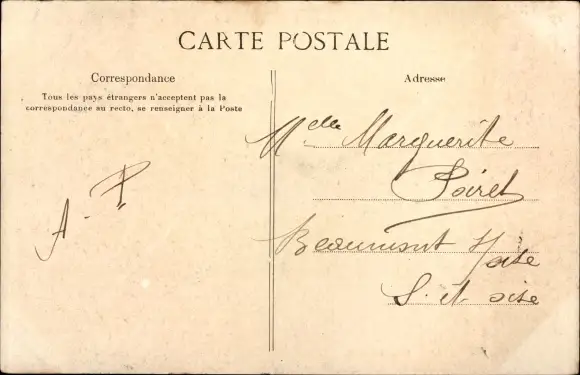 CARTE POSTALE
Correspondance
Tous les pays étrangers n'acceptent pas la
correspondance au recto, se renseigner à la Poste
A. P
Adresse
Melle Marguerite
Poiret
Beaumont s/oise
S. et oise